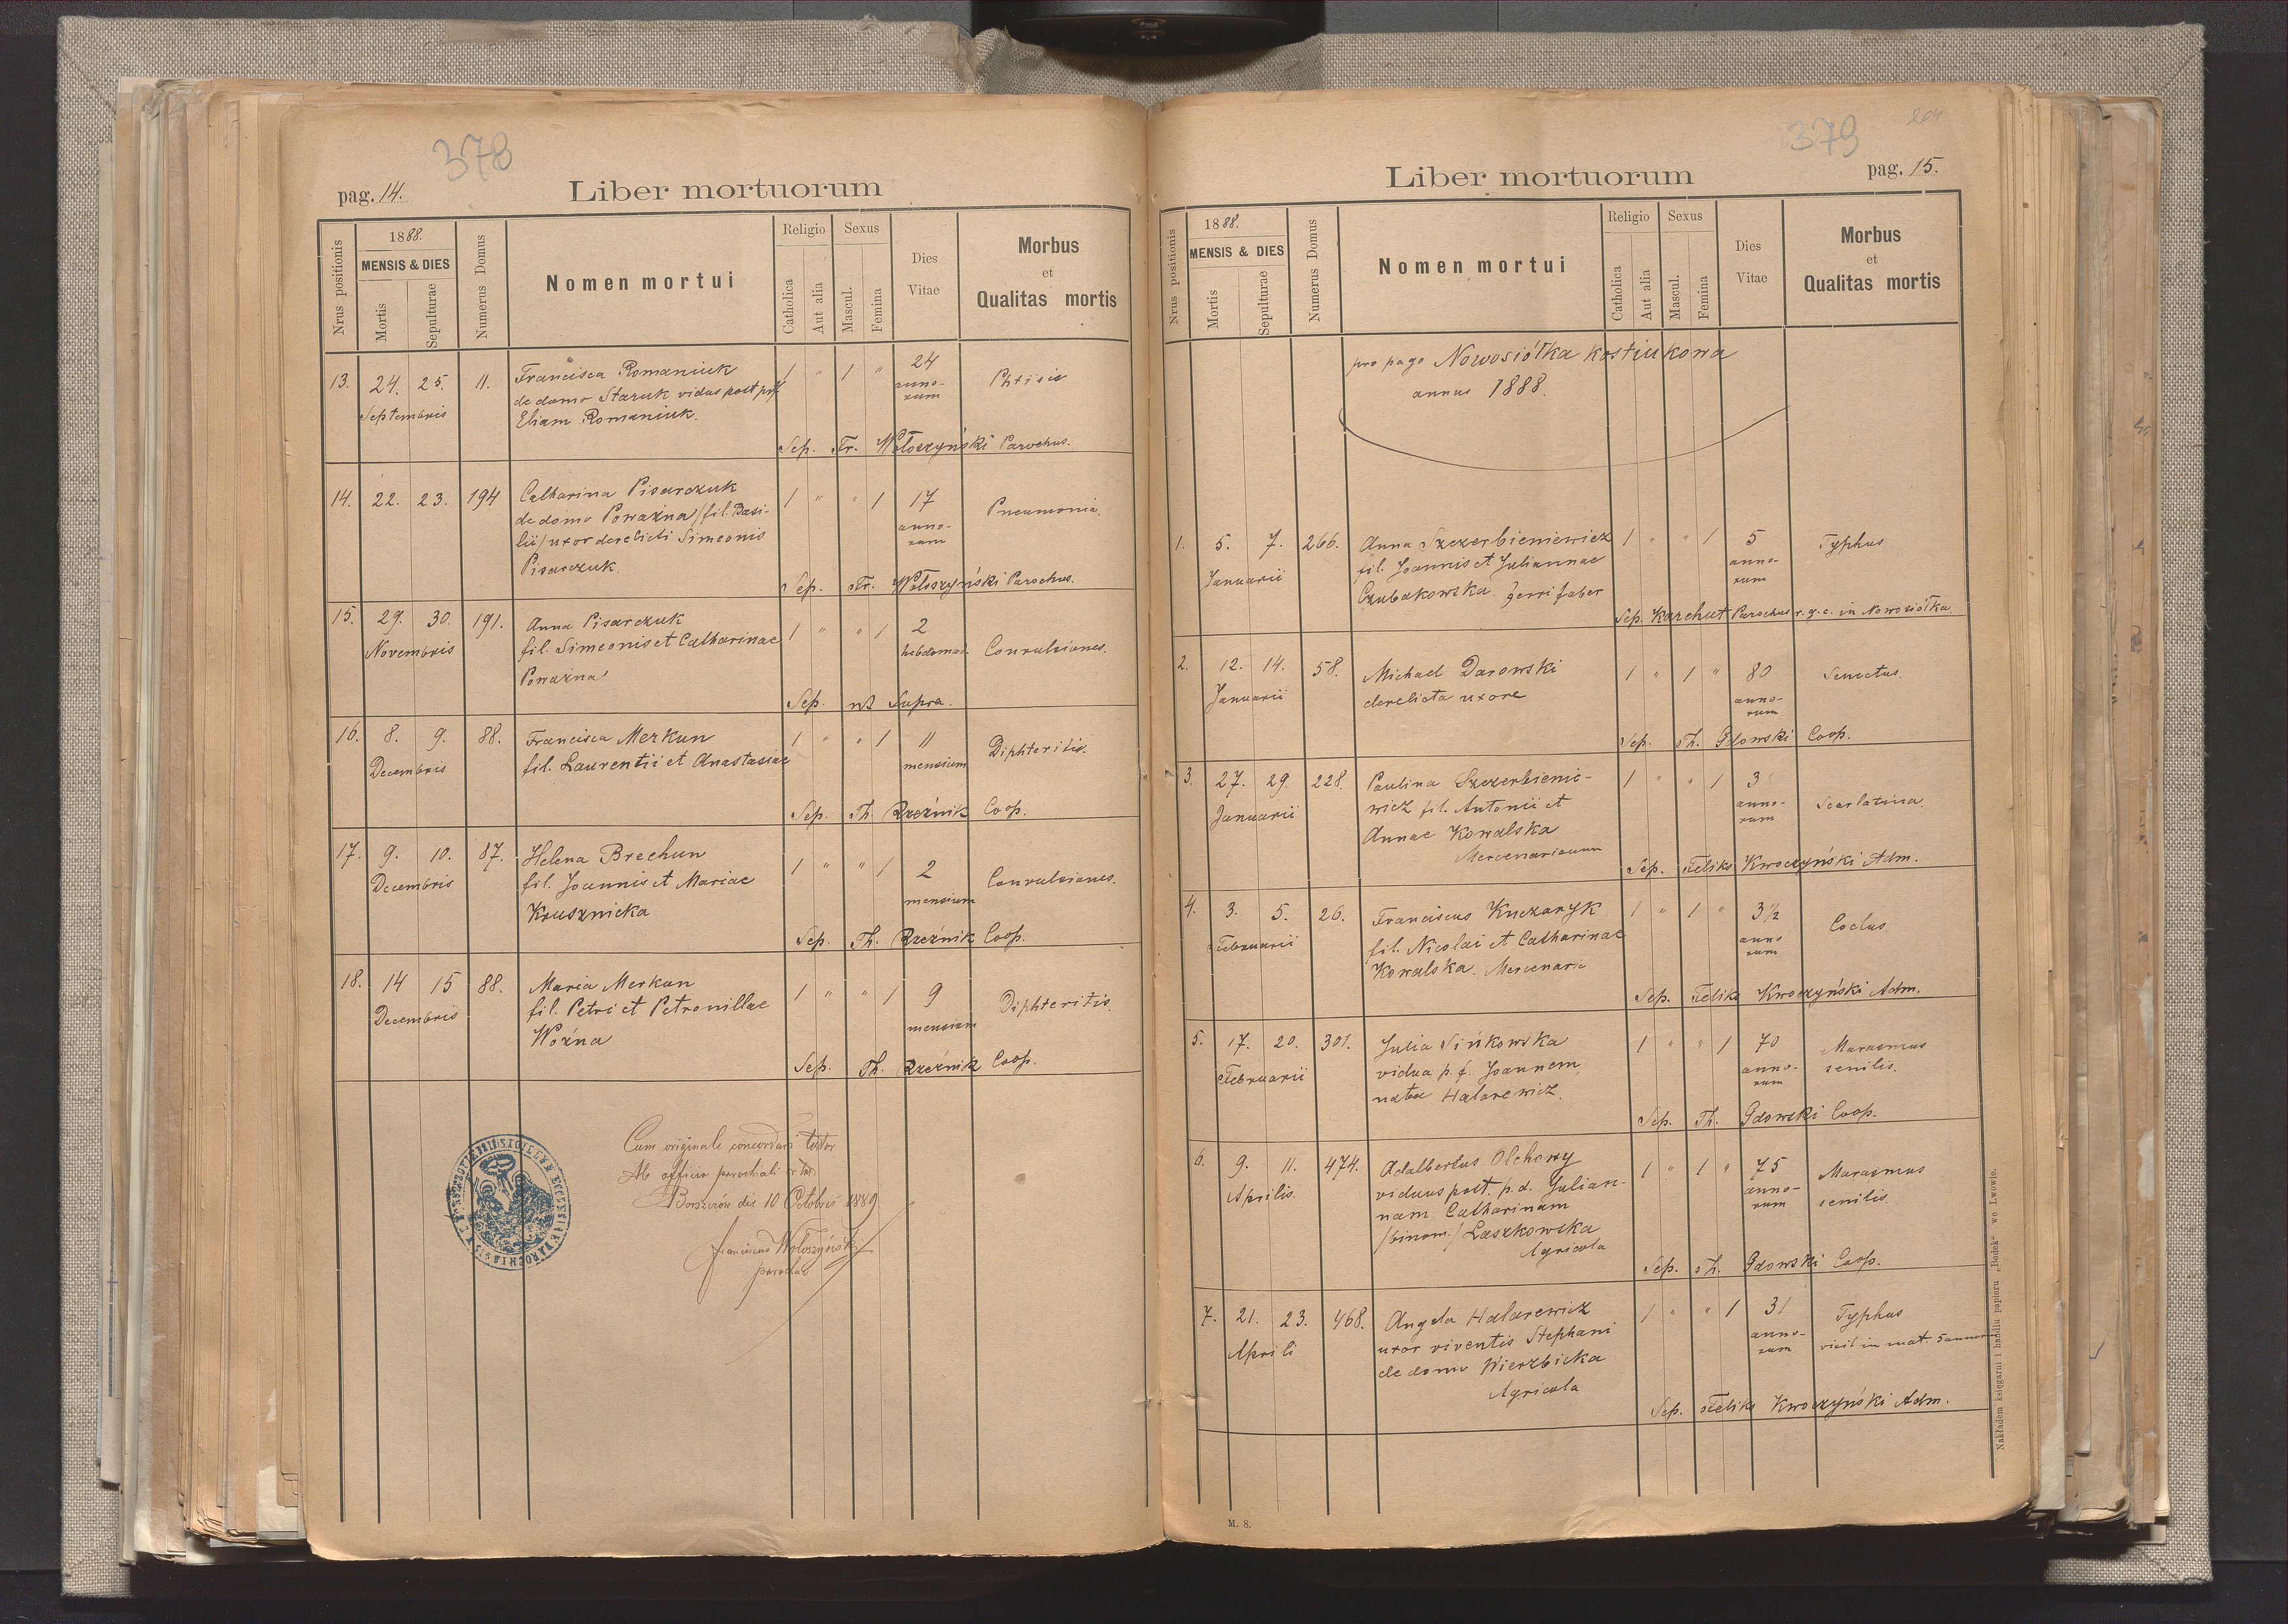 378
pag. 14.
Liber mortuorum
Nrus positionis
1888.
MENSIS & DIES
Mortis
Sepulturae
Numerus Domus
Nomen mortui
Religio
Catholica
Aut alia
Sexus
Mascul.
Femina
Dies
Vitae
Morbus
et
Qualitas mortis
13. 24. 25. 11. Francisca Romaniuk 1 " 1 " 24 Phtisis
Septembris de domo Staruk vidua post p.d. anno-
Eliam Romaniuk. rum
Sep. Fr. Wołoszyński Parochus.
14. 22. 23. 194 Catharina Pisarczuk 1 " " 1 17 Pneumonia.
de domo Poważna /fil. Basi- anno-
lii/ uxor derelicti Simeonis rum
Pisarczuk.
Sep. Fr. Wołoszyński Parochus.
15. 29. 30. 191. Anna Pisarczuk 1 " " 1 2
Novembris fil. Simeonis et Catharinae hebdomad. Convulsiones.
Poważna
Sep. ut Supra.
16. 8. 9. 88. Francisca Merkun 1 " " 1 11 Diphteritis.
Decembris fil. Laurentii et Anastasiae mensium
Sep. Th. Rzeźnik Coop.
17. 9. 10. 87. Helena Brechun 1 " " 1 2 Convulsiones.
Decembris fil. Joannis et Mariae mensium
Krusznicka
Sep. Th. Rzeźnik Coop.
18. 14 15 88. Maria Merkun 1 " " 1 9 Diphteritis.
Decembris fil. Petri et Petronillae mensium
Woźna
Sep. Th. Rzeźnik Coop.
Cum originali concordare testor
Ab officio parochali r. lat.
Borszczów die 10 Octobris 1889
Franciscus Wołoszyński
parochus
379
204
Liber mortuorum
pag. 15.
Nrus positionis
1888.
MENSIS & DIES
Mortis
Sepulturae
Numerus Domus
Nomen mortui
Religio
Catholica
Aut alia
Sexus
Mascul.
Femina
Dies
Vitae
Morbus
et
Qualitas mortis
pro pago Nowosiółka kostiukowa
annus 1888.
1. 5. 7. 266. Anna Szczerbieniewicz 1 " " 1 5 Typhus
Januarii fil. Joannis et Juliannae anno-
Czubakowska. ferri faber rum
Sep. Karchut Parochus r. g. c. in Nowosiółka
2. 12. 14. 58. Michael Darowski 1 " 1 " 80 Senectus.
Januarii derelicta uxore anno-
rum
Sep. Th. Gdowski Coop.
3. 27. 29. 228. Paulina Szczerbienie- 1 " " 1 3
Januarii wicz fil. Antonii et anno- Scarlatina.
Annae Kowalska rum
Mercenariorum
Sep. Feliks Kwoczyński Adm.
4. 3. 5. 26. Franciscus Kuczaryk 1 " 1 " 3 1/2 Coclus.
Februarii fil. Nicolai et Catharinae anno
Kowalska. Mercenarii rum
Sep. Feliks Kwoczyński Adm.
5. 17. 20. 301. Julia Sińkowska 1 " " 1 70 Marasmus
Februarii vidua p. f. Joannem anno- senilis.
nata Halarewicz. rum
Sep. Th. Gdowski Coop.
6. 9. 11. 474. Adalbertus Olchowy 1 " 1 " 75 Marasmus
Aprilis. viduus post. p. d. Julian- anno- senilis
nam Catharinam rum
/binom./ Laszkowska
Agricola
Sep. Th. Gdowski Coop.
7. 21. 23. 468. Angela Halarewicz 1 " " 1 31 Typhus
Aprili uxor viventis Stephani anno- vixit in mat. 5 annorum
de domo Wierzbicka rum
Agricola
Sep. Feliks Kwoczyński Adm.
M. 8.
Nakładem księgarni i handlu papieru „Bodek" we Lwowie.